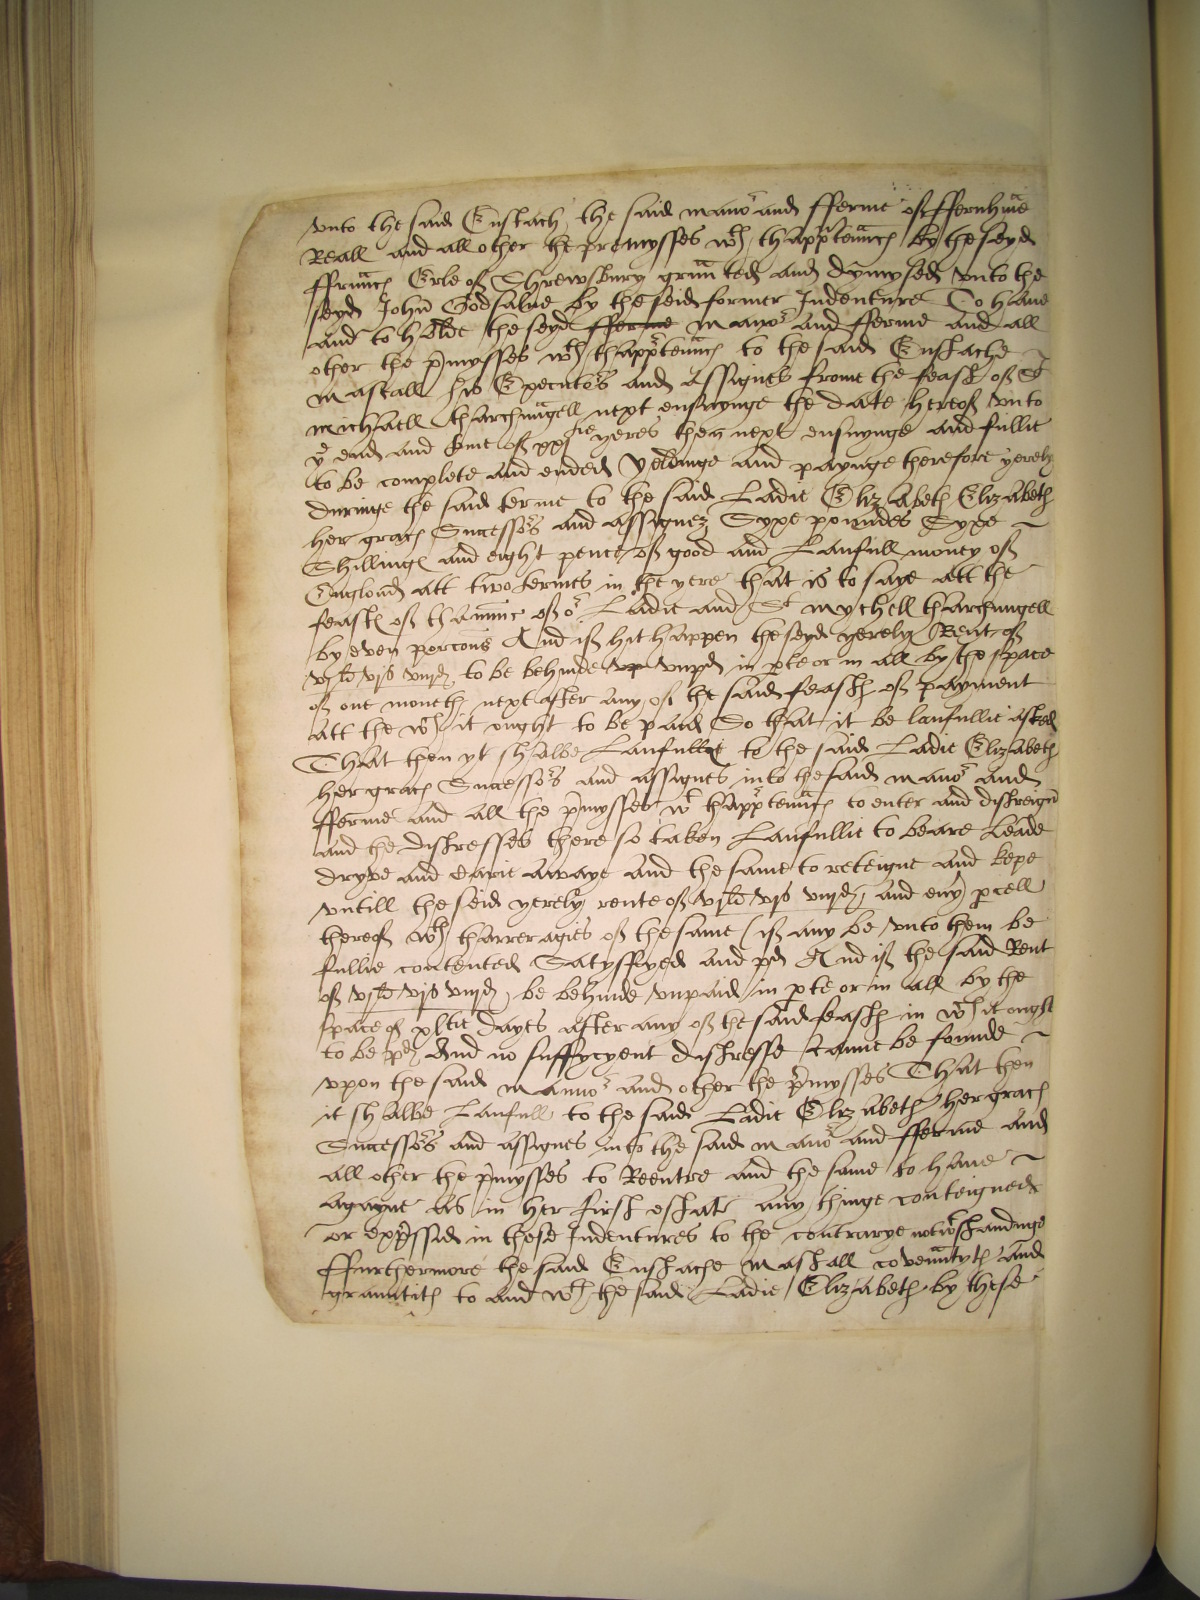 vnto the said Eustach the said manor and fferme of ffernhm̄e
Reall and all other the premysses wth thapptenn̄ces by the seyd
ffrn̄ces Erle of Shrewsbury graunted and dymysed vnto the
seyd John Godsalue by the seid former Indenture To haue
and to holde the seyd fferme manor and fferme and all
other the p̄mysses wth thapptenn̄ces to the said Eustache
mascall his Executors and Assignes frome the feast of St
michaell tharchangell next ensuynge the date hereof vnto
ye end and tme of xxjtie yeres then next ensuynge and fullie
to be complete and ended Yeldinge and payinge therefore yerely
duringe the said terme to the said Ladie Elizabeth Elizabeth
her graces Successors and assignez Syxe poundes Syxe
Shillinges and eight pence of good and Laufull money of
Englond att two termes in the yere that is to saye att the
feastes of thannnc of or Ladie and St mychell tharchangell
by even porcons And if hit happen the seyd yerely Rent of
vjli vjs viijd to be behinde vp vnpd in pte or in all by the space
of one moneth next after any of the said feastes of payment
att the wch it ought to be paid So that it be laufullie asked
That then yt shalbe Laufull to the said Ladie Elizabeth
her graces Successors and assignes into the said manor and
fferme and all the p̄mysses wt thapptenn̄ces to enter and distreign
and the distresses there so taken Laufullie to beare Leade
dryve and Carie awaye and the same to reteigne and kepe
vntill the seid yerely rente of vjli vjs viijd and eu̾y pcell
thereof wth tharreragies of the same (if any be vnto them be
fullie contented Satysffyed and pd And if the said Rent
of vjli vjs viijd be behinde vnpaid in pte or in all by the
space of xltie dayes after any of the said feastes in wch it ought
to be pd And no suffycyent distresse canne be founde
vpon the said mannor and other the p̄mysses That then
it shalbe Laufull to the said Ladie Elizabeth her graces
Successors and assignes into the said manor and fferme and
all other the p̄mysses to Reentre and the same to haue
agayne as in her first estate any thinge conteigned
or exp̄ssid in these Indentures to the contrarye notwtstandinge
ffurthermore the said Eustache Mascall covenn̄tyth and
grauntith to and wth the said Ladie Elizabeth by these